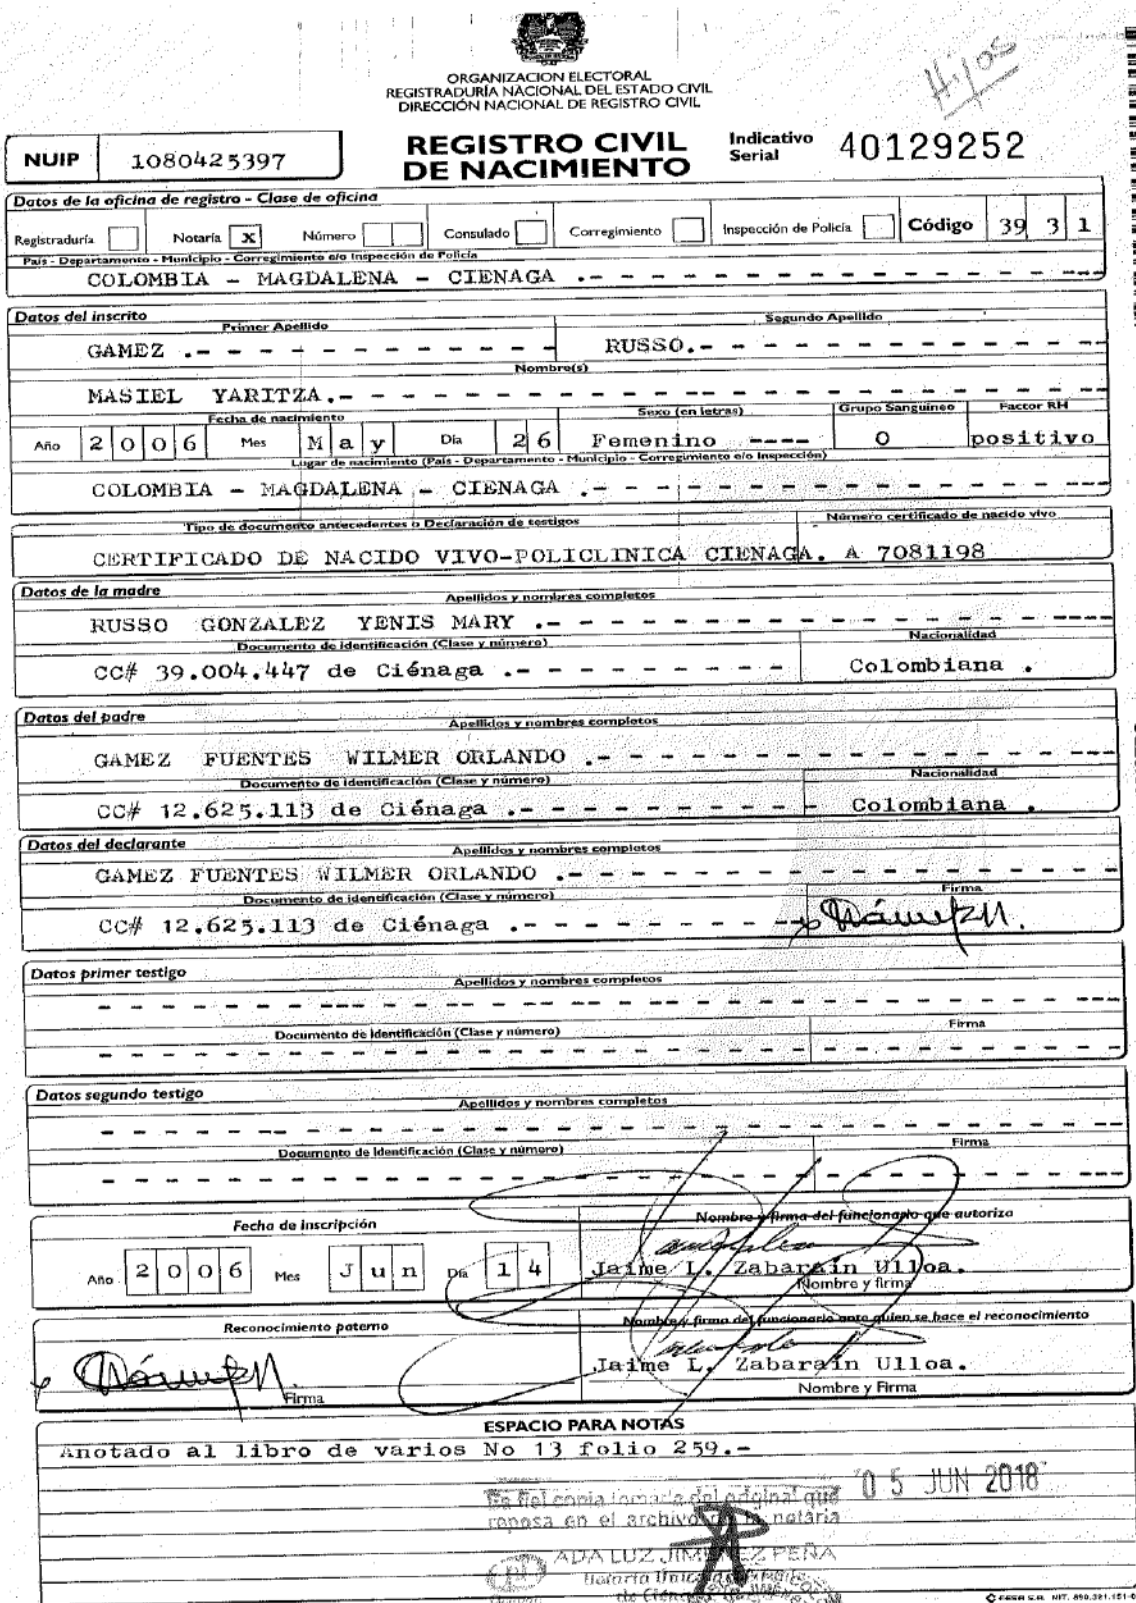 Hijos
ORGANIZACION ELECTORAL
REGISTRADURÍA NACIONAL DEL ESTADO CIVIL
DIRECCIÓN NACIONAL DE REGISTRO CIVIL
NUIP 1080425397
REGISTRO CIVIL
DE NACIMIENTO
Indicativo
Serial 40129252
Datos de la oficina de registro - Clase de oficina
Registraduría Notaría X Número Consulado Corregimiento Inspección de Policía Código 39 3 1
País - Departamento - Municipio - Corregimiento e/o Inspección de Policía
COLOMBIA - MAGDALENA - CIENAGA .- - - - - - - - - - - - - ---
Datos del inscrito
Primer Apellido Segundo Apellido
GAMEZ .- - - - - - - - - - - - RUSSO.- - - - - - - - - - - - ---
Nombre(s)
MASIEL YARITZA.- - - - - - - - - - - - - - - - - - - - - - - - --
Fecha de nacimiento Sexo (en letras) Grupo Sanguíneo Factor RH
Año 2006 Mes May Día 26 Femenino ---- O positivo
Lugar de nacimiento (País - Departamento - Municipio - Corregimiento e/o Inspección)
COLOMBIA - MAGDALENA - CIENAGA .- - - - - - - - - - - - - ---
Tipo de documento antecedentes o Declaración de testigos Número certificado de nacido vivo
CERTIFICADO DE NACIDO VIVO-POLICLINICA CIENAGA. A 7081198
Datos de la madre
Apellidos y nombres completos
RUSSO GONZALEZ YENIS MARY .- - - - - - - - - - - - - - ----
Documento de identificación (Clase y número) Nacionalidad
CC# 39.004.447 de Ciénaga .- - - - - - - - Colombiana .
Datos del padre
Apellidos y nombres completos
GAMEZ FUENTES WILMER ORLANDO .- - - - - - - - - - - - - ---
Documento de identificación (Clase y número) Nacionalidad
CC# 12.625.113 de Ciénaga .- - - - - - - - Colombiana .
Datos del declarante
Apellidos y nombres completos
GAMEZ FUENTES WILMER ORLANDO .- - - - - - - - - - - - - - -
Documento de identificación (Clase y número) Firma
CC# 12.625.113 de Ciénaga .- - - - - - - --
Datos primer testigo
Apellidos y nombres completos
Documento de identificación (Clase y número) Firma
Datos segundo testigo
Apellidos y nombres completos
Documento de identificación (Clase y número) Firma
Fecha de inscripción Nombre y firma del funcionario que autoriza
Año 2006 Mes Jun Día 14 Jaime L. Zabaraín Ulloa.
Nombre y firma
Reconocimiento paterno Nombre y firma del funcionario ante quien se hace el reconocimiento
Jaime L. Zabaraín Ulloa.
Firma Nombre y Firma
ESPACIO PARA NOTAS
Anotado al libro de varios No 13 folio 259.-
05 JUN 2018
Es fiel copia tomada del original que
reposa en el archivo de la notaría
ADA LUZ JIMENEZ PEÑA